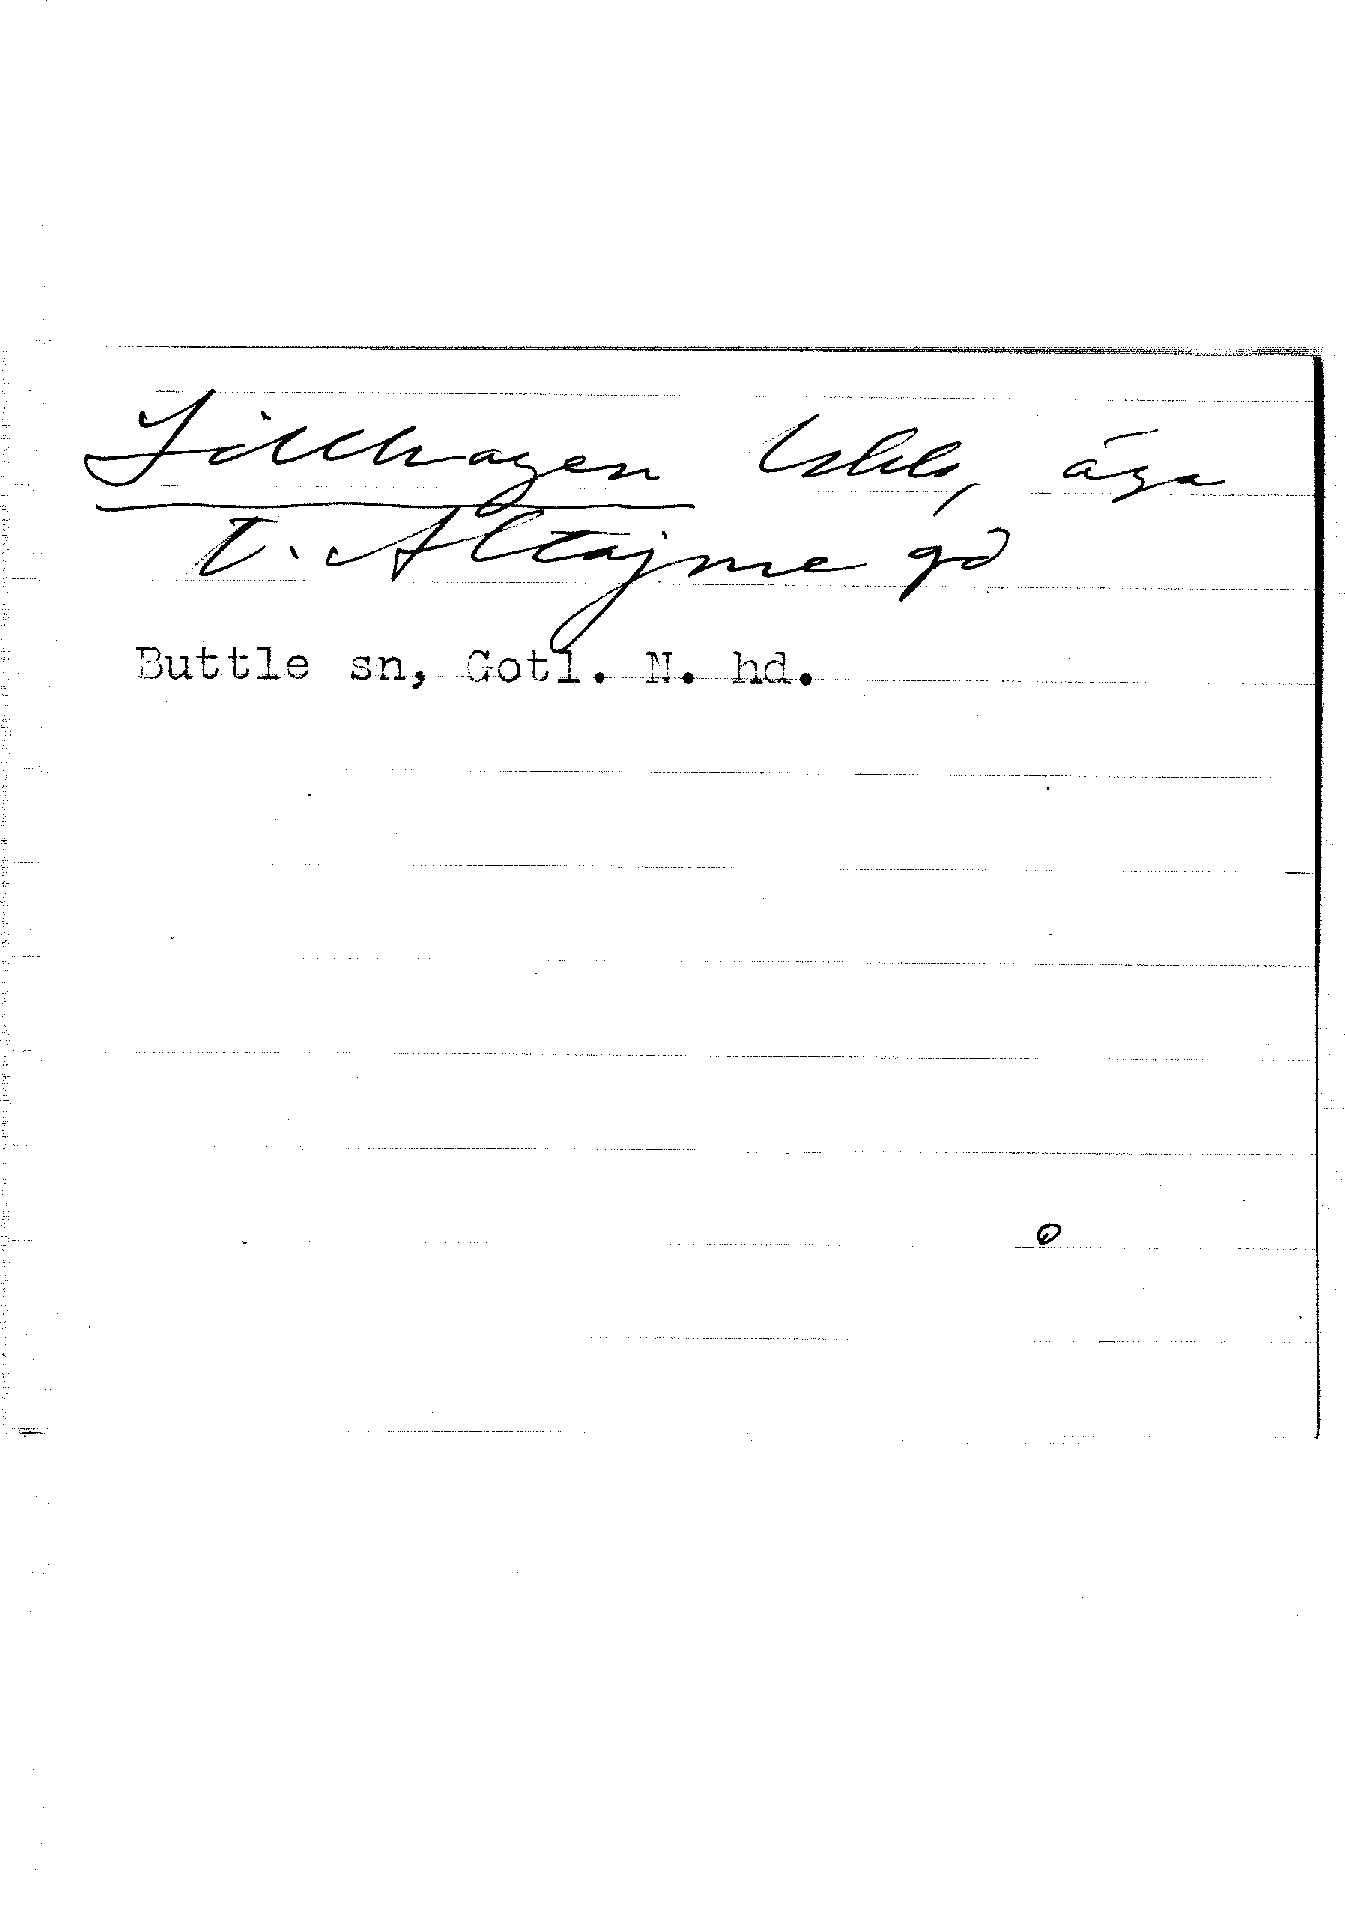 Lillhagen Uckb, äga
t. Altajme gd
Buttle sn, Gotl. N. hd.